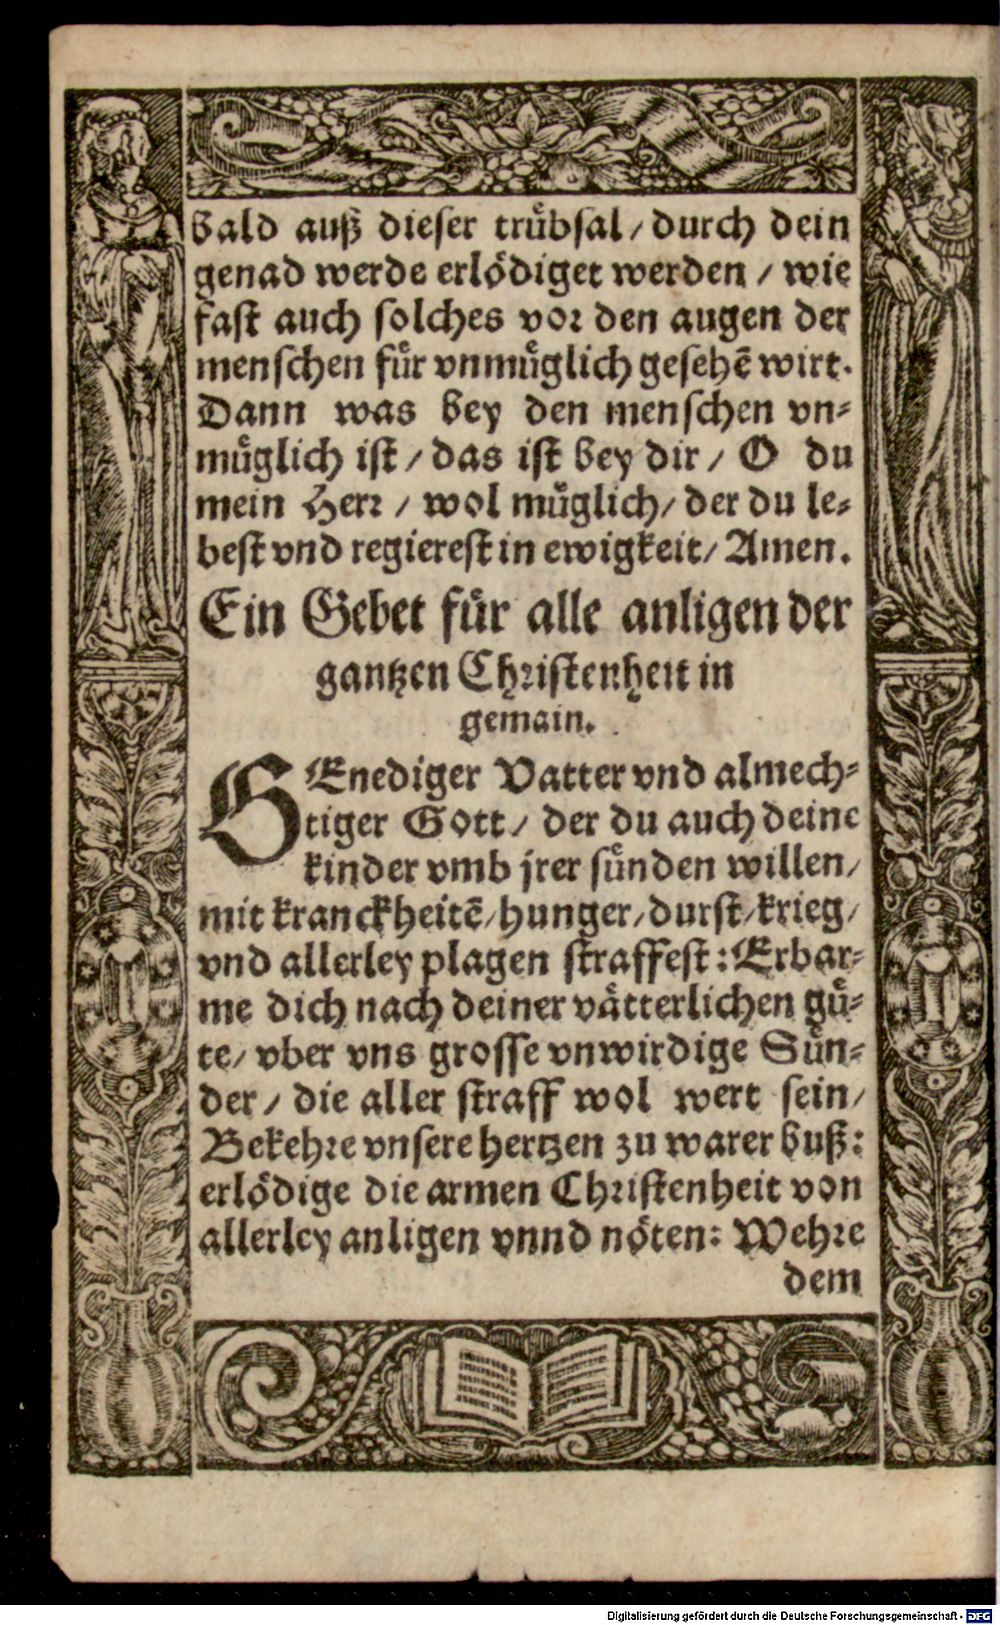 bald auß dieser truͤbsal / durch dein
genad werde erloͤdiget werden / wie
fast auch solches vor den augen der
menschen fuͤr vnmuͤglich gesehē wirt.
Dann was bey den menschen vn-
muͤglich ist / das ist bey dir / O du
mein Herr / wol muͤglich / der du le-
best vnd regierest in ewigkeit / Amen.
Ein Gebet fuͤr alle anligen der
gantzen Christenheit in
gemain.
GEnediger Vatter vnd almech-
tiger Gott / der du auch deine
kinder vmb jrer suͤnden willen /
mit kranckheitē / hunger / durst / krieg /
vnd allerley plagen straffest: Erbar-
me dich nach deiner vaͤtterlichen guͤ-
te / vber vns grosse vnwirdige Suͤn-
der / die aller straff wol wert sein /
Bekehre vnsere hertzen zu warer buß:
erloͤdige die armen Christenheit von
allerley anligen vnnd noͤten: Wehre
dem
Digitalisierung gefördert durch die Deutsche Forschungsgemeinschaft - DFG